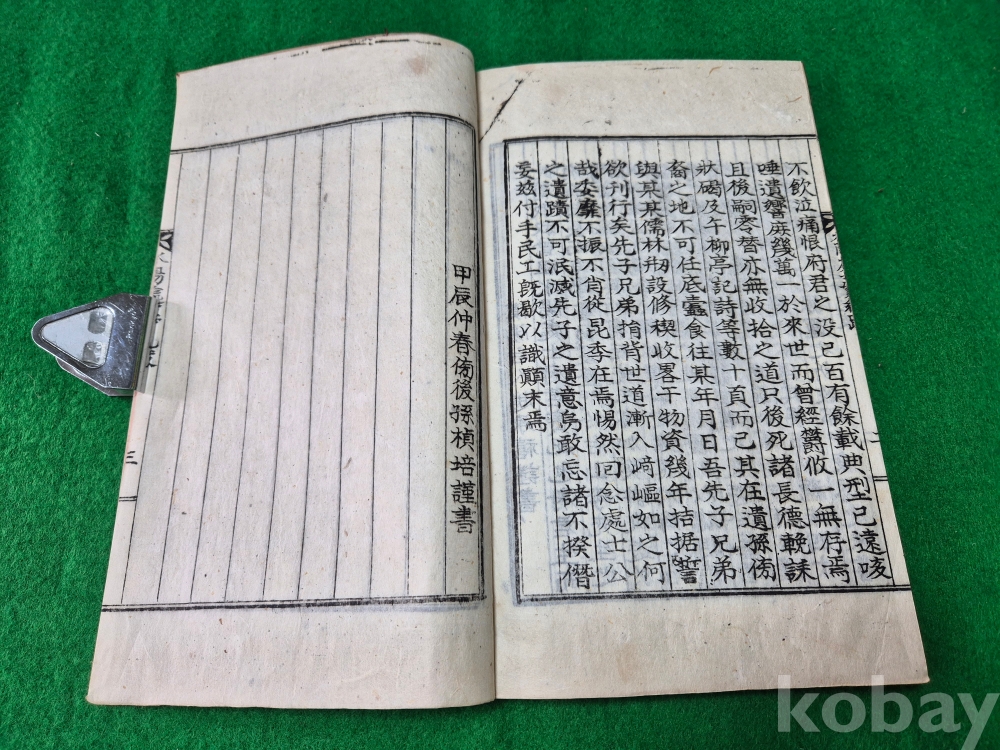 不飮泣痛恨府君之沒已百有餘載典型已遠咳
唾遺響庶幾萬一於來世而曾經鬱攸一無存焉
且後嗣零替亦無收拾之道只後死諸長德輓誄
狀碣及午柳亭記詩等數十頁而已其在遺孫傍
裔之地不可任底蠹食往某年月日吾先子兄弟
與某某儒林刱設修稧收畧干物資幾年拮据誓
欲刊行矣先子兄弟指背世道漸入崎嶇如之何
哉委靡不振不肖從昆季在焉惕然回念處士公
之遺蹟不可泯滅先子之遺意曷敢忘諸不揆僭
妄玆付手民工旣歇以識顚末焉
甲辰仲春傍後孫楨培謹書
三
kobay